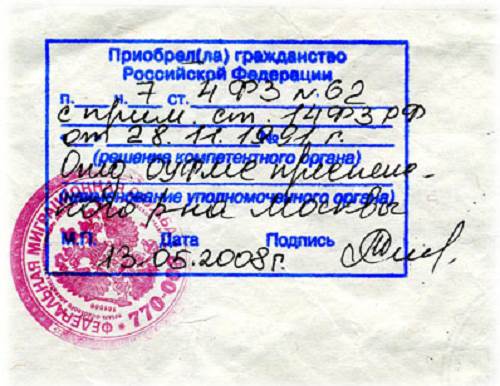 Приобрел(ла) гражданство
Российской Федерации
п. н. 7 ст. 4 ФЗ N. 62
с прим. ст. 14 ФЗ РФ
от 28.11.1991 г. №
(решение компетентного органа)
ОУФМС
(наименование уполномоченного органа)
р-на Москвы
М.П. Дата Подпись
13.05.2008г.
ФЕДЕРАЛЬНАЯ МИГРАЦИОННАЯ
770-0